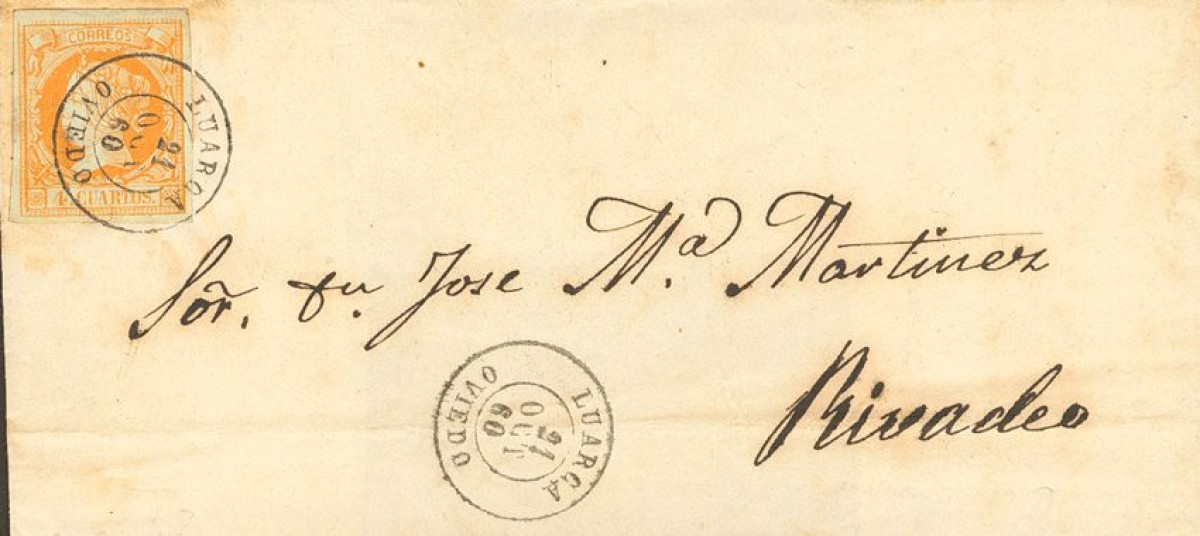 CORREOS
4 CUARTOS.
LUARCA
21
OCT
60
OVIEDO
Sor. Dn. Jose Ma. Martinez
Rivadeo
LUARCA
21
OCT
60
OVIEDO